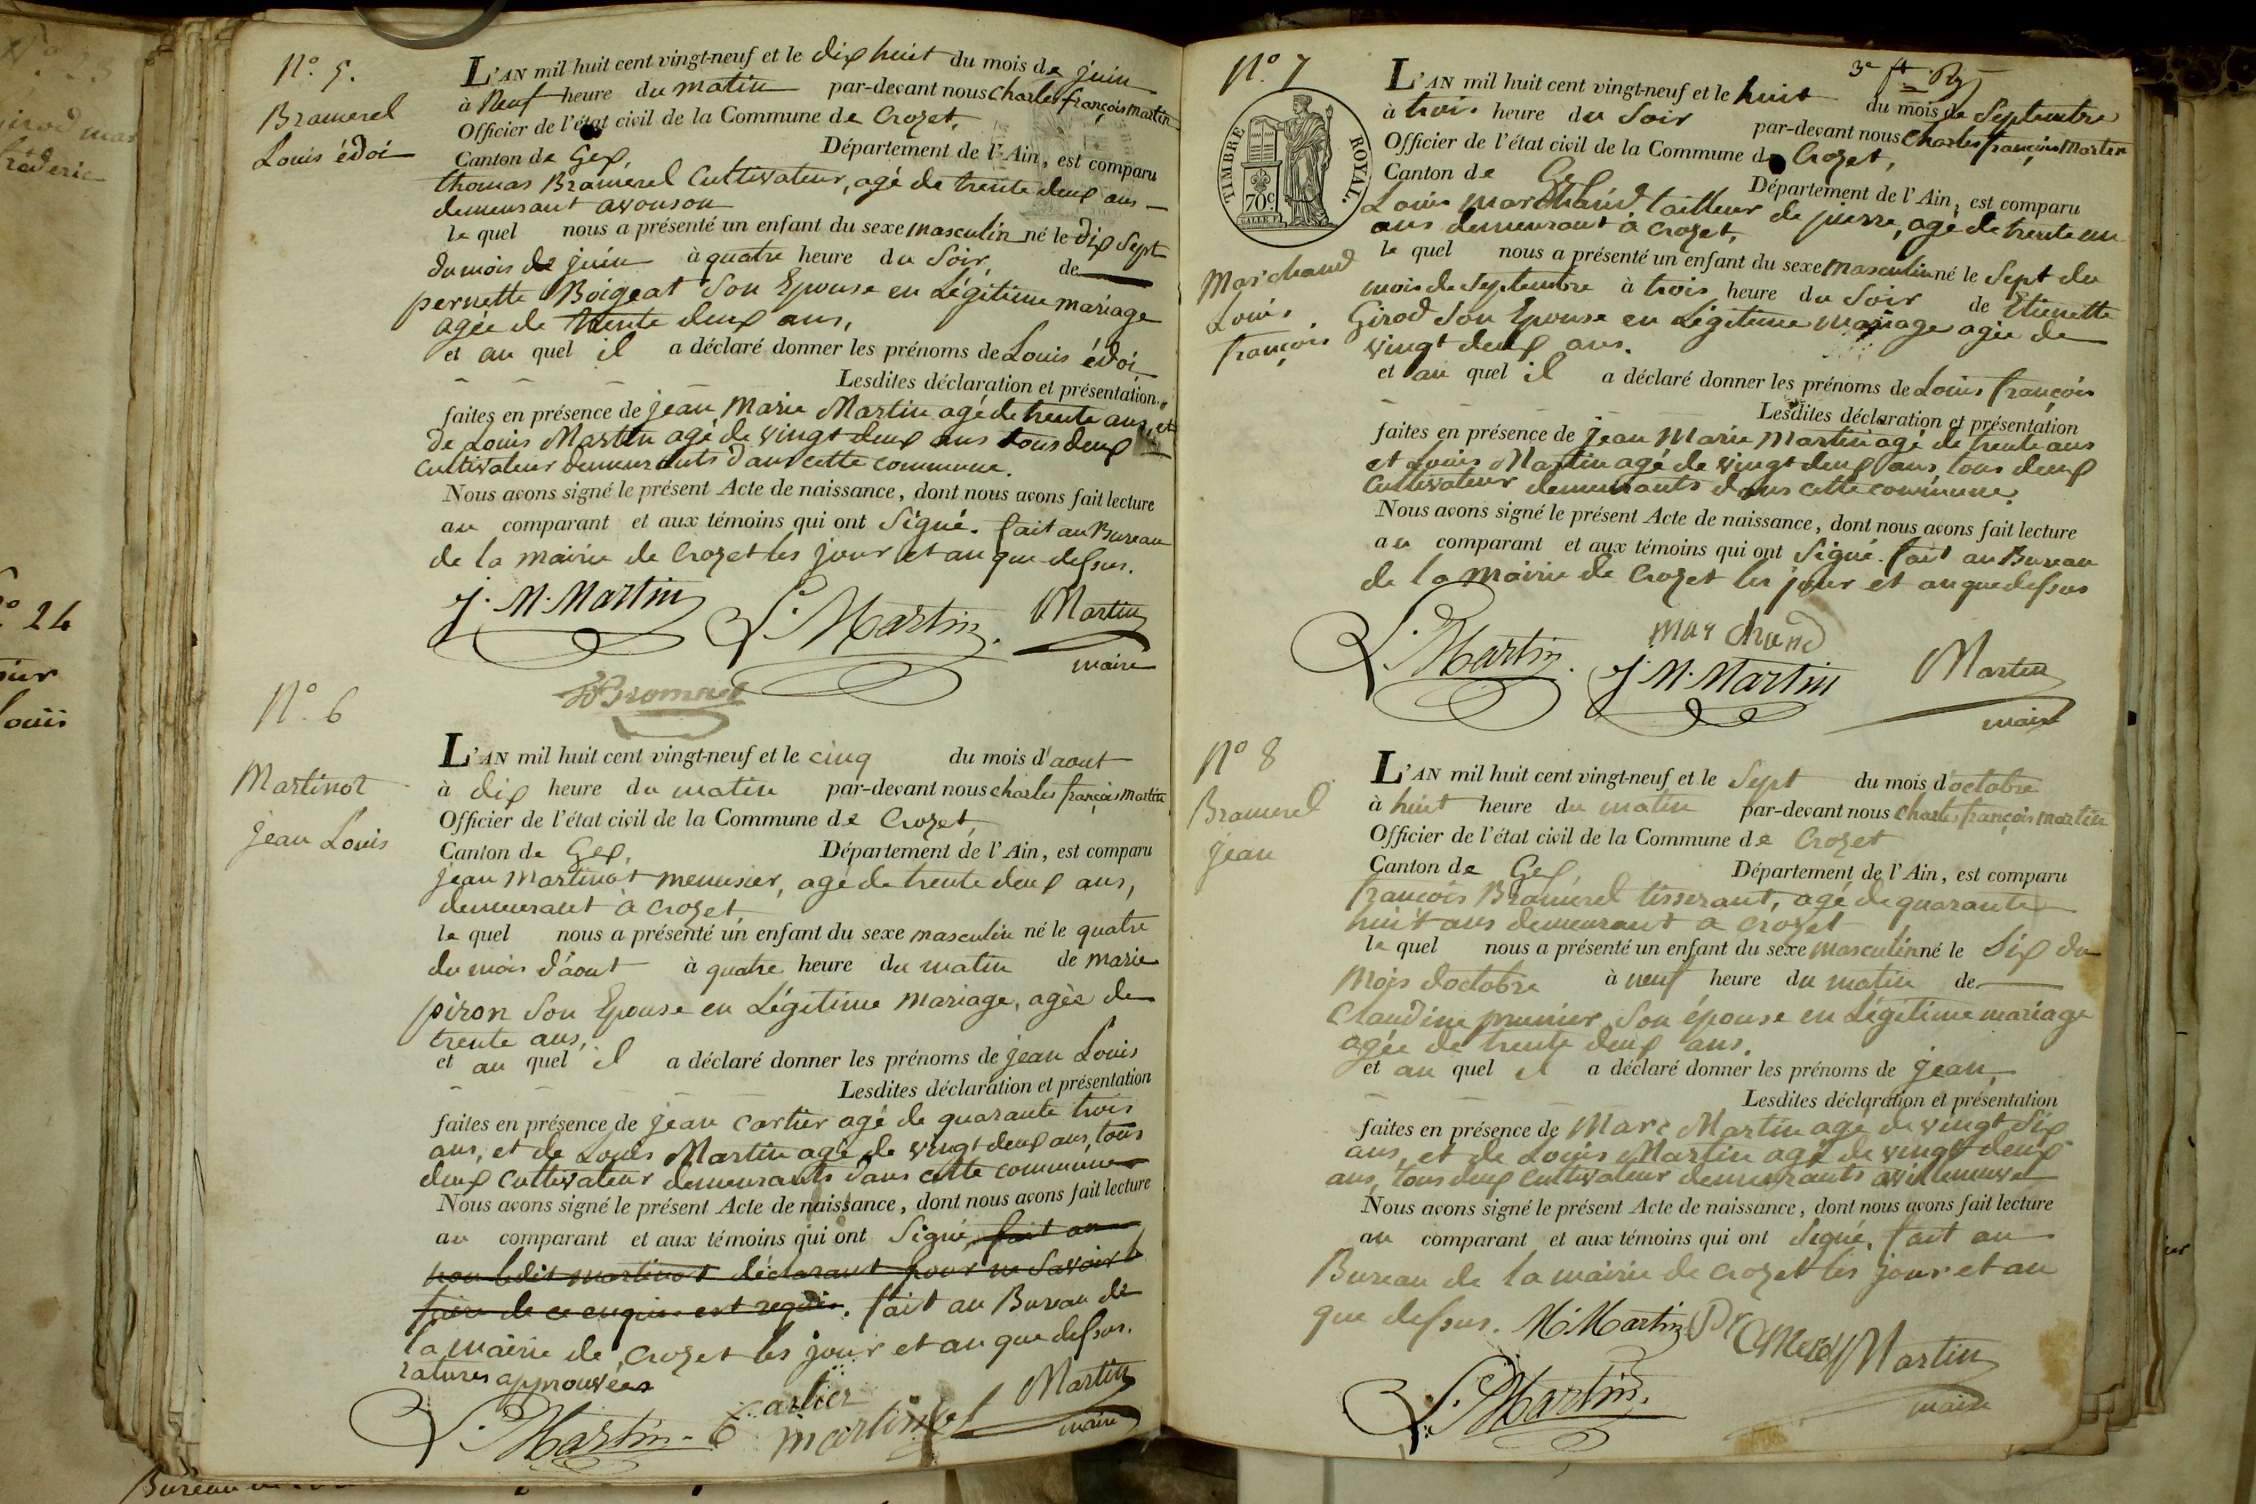 N.o 5.
Bramerel
Louis édoi
L'AN mil huit cent vingt-neuf et le dix huit du mois de juin
à Neuf heure du matin par-devant nous charles françois martin
Officier de l'état civil de la Commune de Crozet,
Canton de Gex, Département de l'Ain, est comparu
thomas Bramerel Cultivateur, agé de trente deux ans
demeurant avouson
le quel nous a présenté un enfant du sexe masculin né le dix sept
du mois de juin à quatre heure du Soir, de
pernette Boigeat Son Epouse en Légitime mariage
agée de trente deux ans,
et au quel il a déclaré donner les prénoms de Louis édoi,
Lesdites déclaration et présentation
faites en présence de jean Marie Martin agé de trente ans, et
de Louis Martin agé de vingt deux ans tous deux
cultivateur demeurants dans cette commune.
Nous avons signé le présent Acte de naissance, dont nous avons fait lecture
au comparant et aux témoins qui ont Signé. fait au Bureau
de la mairie de Crozet les jour et an que dessus.
J. M. Martin L. Martin. Martin
maire
N.o 6
Martinot
jean Louis
L'AN mil huit cent vingt-neuf et le cinq du mois d'aout
à dix heure du matin par-devant nous charles françois martin
Officier de l'état civil de la Commune de Crozet,
Canton de Gex, Département de l'Ain, est comparu
jean Martinot menusier, agé de trente deux ans,
demeurant à Crozet,
le quel nous a présenté un enfant du sexe masculin né le quatre
du mois d'aout à quatre heure du matin de marie
piron Son Epouse en Légitime mariage, agèe de
trente ans,
et au quel il a déclaré donner les prénoms de jean Louis
Lesdites déclaration et présentation
faites en présence de jean cartier agé de quarante trois
ans, et de Louis Martin agé de vingt deux ans, tous
deux cultivateur demeurants dans cette commune
Nous avons signé le présent Acte de naissance, dont nous avons fait lecture
au comparant et aux témoins qui ont Signé, fait au
non ledit martinot déclarant pour ne Savoir le
faire de ce enquis et requis. fait au Bureau de
la mairie de Crozet les jour et an que dessus.
ratures approuvées
L. Martin. Cartier martinot Martin
maire
N.o 7
3e
TIMBRE ROYAL.
70c
Marchand
Louis
françois
L'AN mil huit cent vingt-neuf et le huit du mois de Septembre
à trois heure du Soir par-devant nous Charles françois Martin
Officier de l'état civil de la Commune de Crozet,
Canton de Gex Département de l'Ain, est comparu
Louis marchand, tailleur de pierre, agé de trente un
ans demeurant à crozet,
le quel nous a présenté un enfant du sexe masculin né le Sept du
mois de septembre à trois heure du Soir de Etienette
Girod Son Epouse en Légitime mariage agée de
vingt deux ans.
et au quel il a déclaré donner les prénoms de Louis françois
Lesdites déclaration et présentation
faites en présence de jean Marie Martin agé de trente ans
et Louis Martin agé de vingt deux ans, tous deux
cultivateur demeurants dans cette commune.
Nous avons signé le présent Acte de naissance, dont nous avons fait lecture
au comparant et aux témoins qui ont Signé. fait au Bureau
de la mairie de Crozet les jour et an que dessus
marchand
L. Martin. J. M. Martin Martin
maire
N.o 8
Bramerel
jean
L'AN mil huit cent vingt-neuf et le Sept du mois d'octobre
à huit heure du matin par-devant nous charles françois martin
Officier de l'état civil de la Commune de Crozet
Canton de Gex, Département de l'Ain, est comparu
françois Bramerel tisserant, agé de quarante
huit ans demeurant a crozet
le quel nous a présenté un enfant du sexe masculin né le Six du
mois doctobre à neuf heure du matin de
Claudine prunier, Son épouse en Légitime mariage
agée de trente deux ans.
et au quel il a déclaré donner les prénoms de jean,
Lesdites déclaration et présentation
faites en présence de Marc Martin agé de vingt Six
ans, et de Louis Martin agé de vingt deux
ans, tous deux cultivateur demeurants
Nous avons signé le présent Acte de naissance, dont nous avons fait lecture
au comparant et aux témoins qui ont Signé, fait au
Bureau de la mairie de crozet les jour et an
que dessus. M. Martin Martin
L. Martin. maire